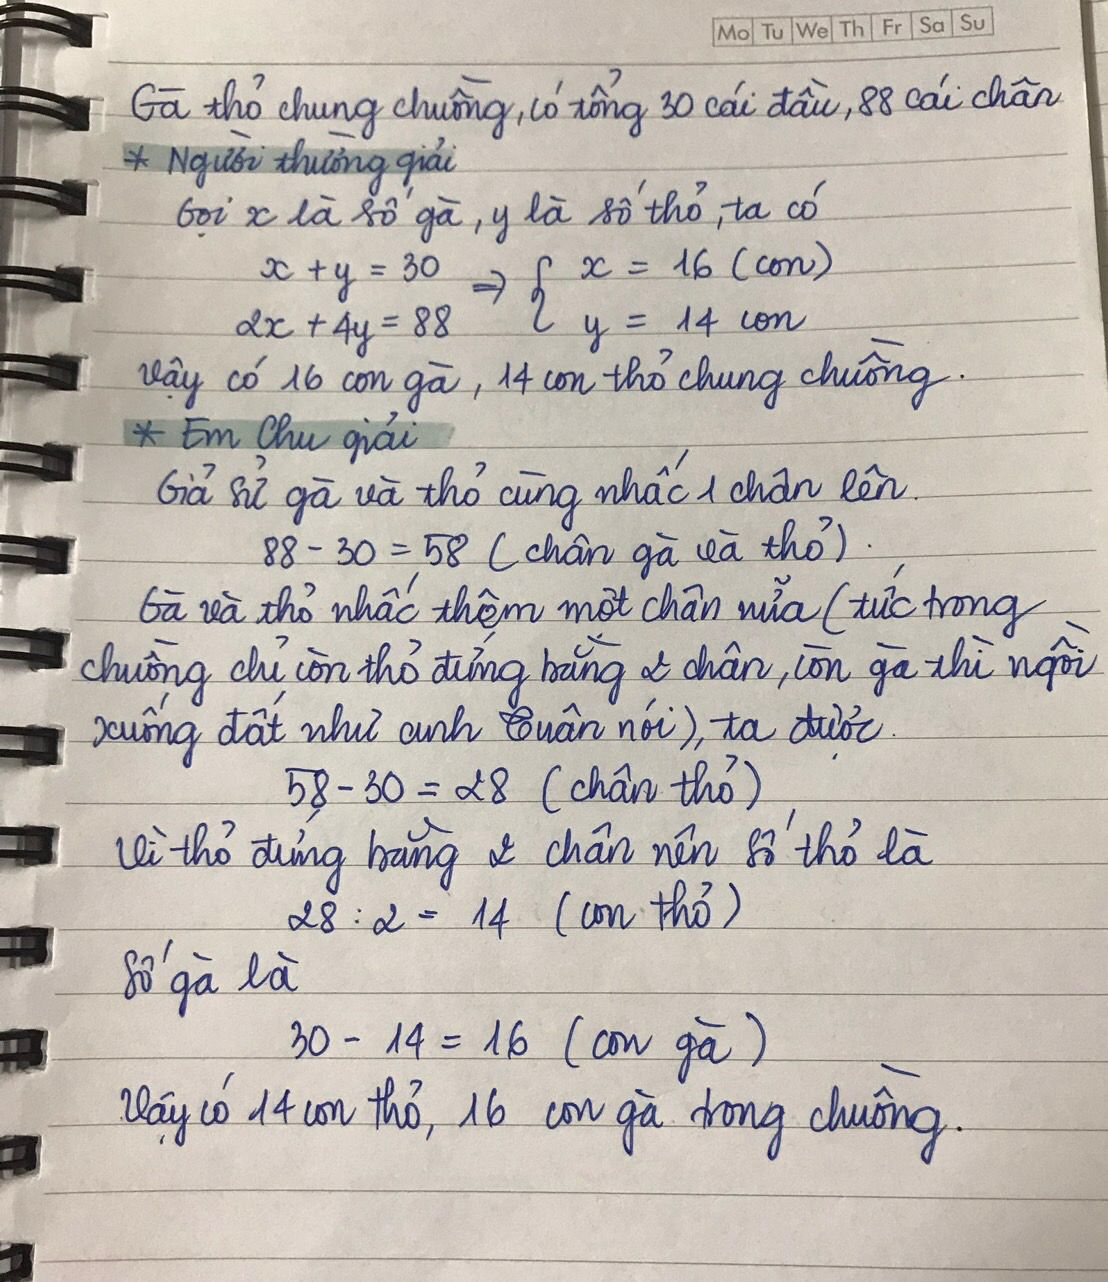 Mo Tu We Th Fr Sa Su
Gà thỏ chung chuồng, có tổng 30 cái đầu, 88 cái chân
* Người thường giải
Gọi x là số gà, y là số thỏ, ta có
x + y = 30 ⇒ { x = 16 (con)
2x + 4y = 88 y = 14 con
Vậy có 16 con gà, 14 con thỏ chung chuồng.
* Em Chu giải
Giả sử gà và thỏ cùng nhấc 1 chân lên.
88 - 30 = 58 (chân gà và thỏ).
Gà và thỏ nhấc thêm một chân nữa (tức trong
chuồng chỉ còn thỏ đứng bằng 2 chân, còn gà thì ngồi
xuống đất như anh Quân nói), ta được.
58 - 30 = 28 (chân thỏ)
Vì thỏ đứng bằng 2 chân nên số thỏ là
28 : 2 = 14 (con thỏ)
Số gà là
30 - 14 = 16 (con gà)
Vậy có 14 con thỏ, 16 con gà trong chuồng.